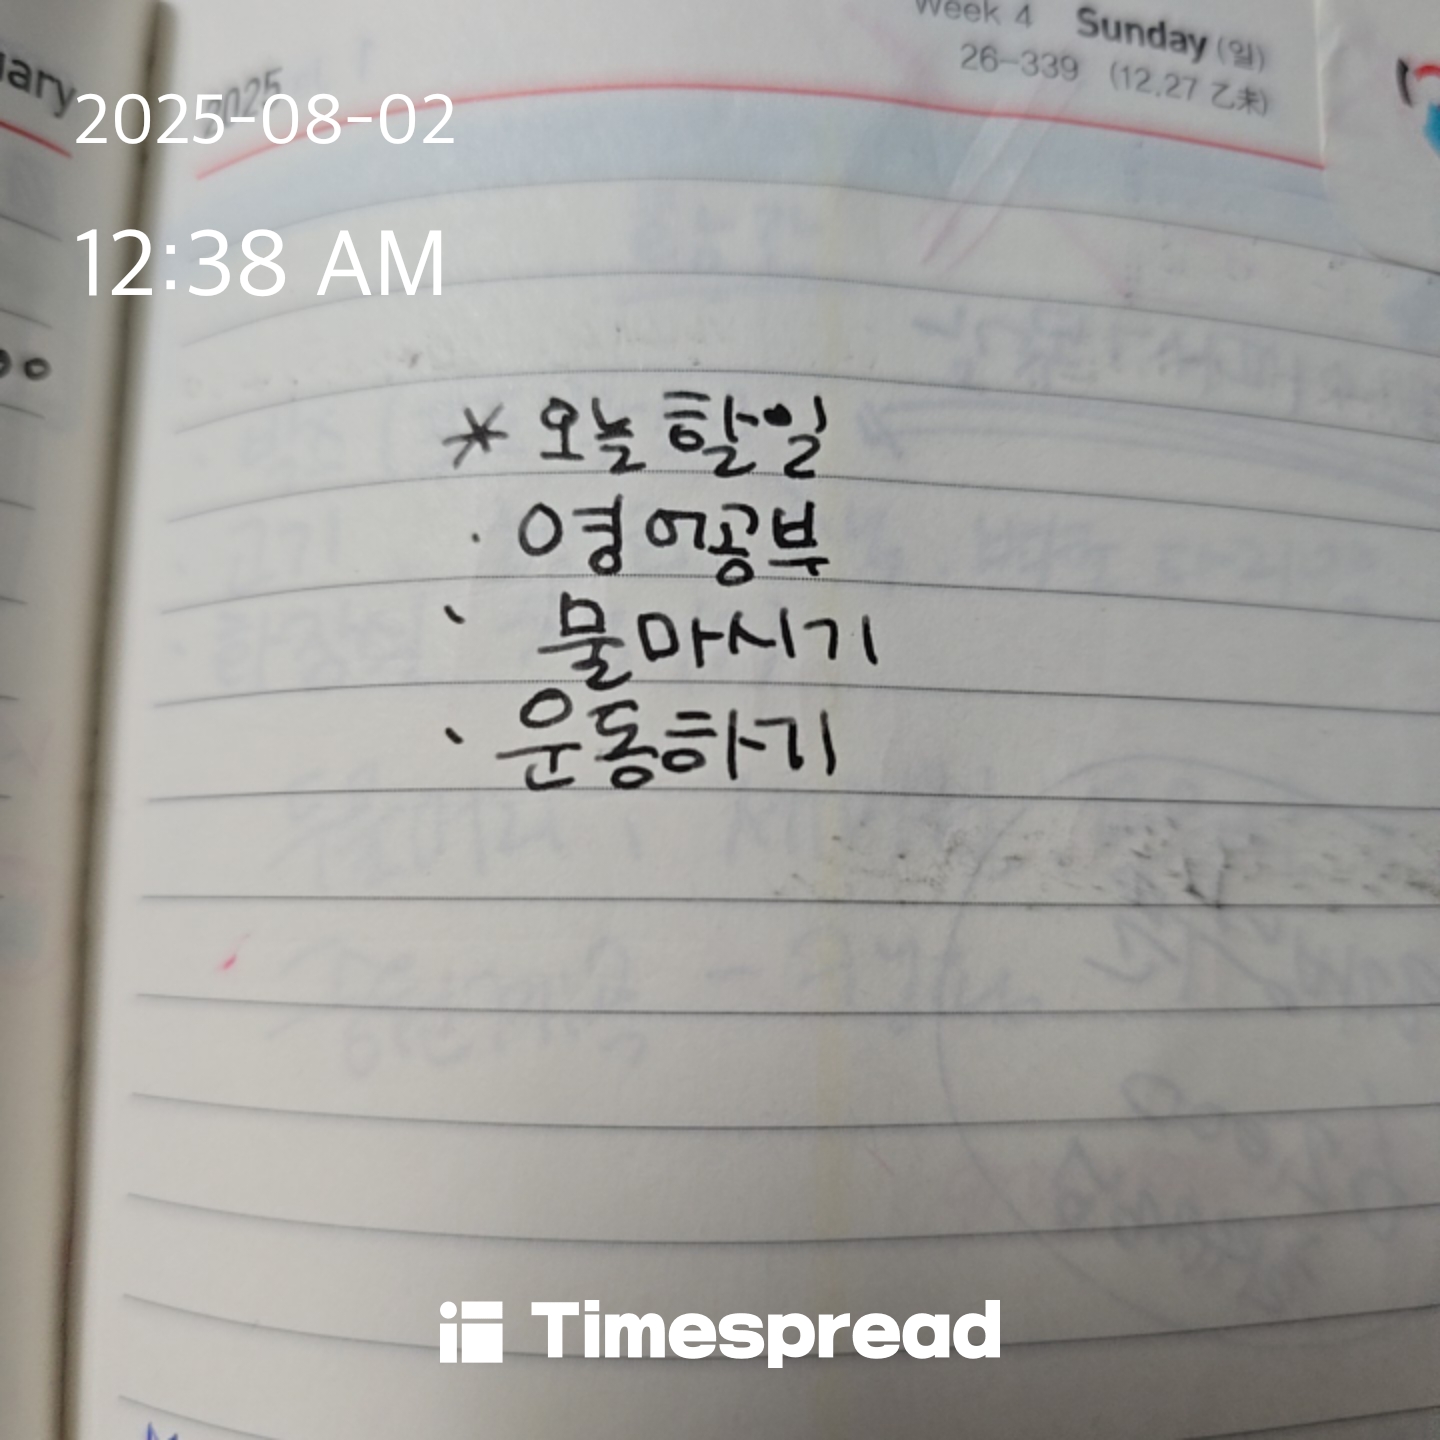 Week 4 Sunday (일)
26-339 (12.27 乙未)
2025
2025-08-02
12:38 AM
* 오늘 할일
· 영어공부
· 물마시기
· 운동하기
Timespread